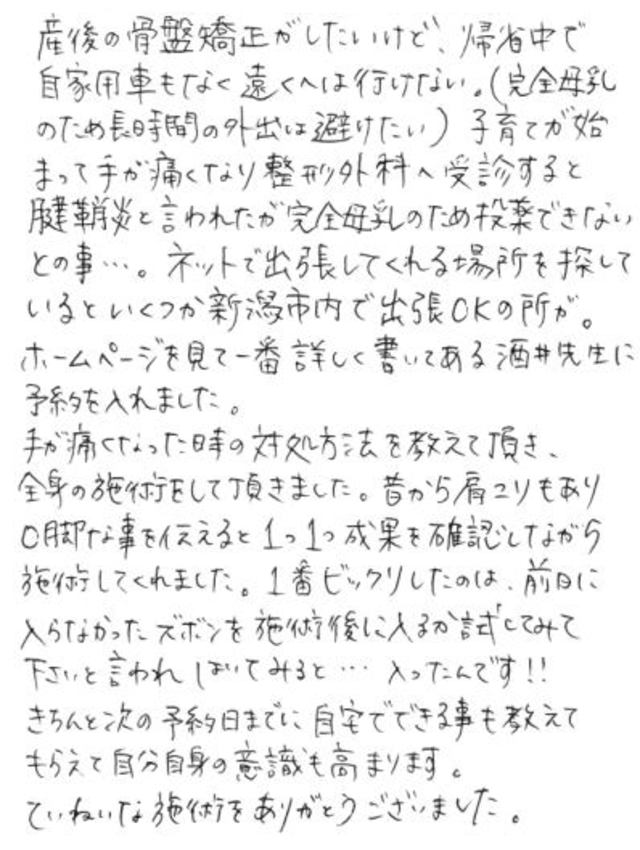 産後の骨盤矯正がしたいけど、帰省中で
自家用車もなく遠くへは行けない。(完全母乳
のため長時間の外出は避けたい)子育てが始
まって手が痛くなり整形外科へ受診すると
腱鞘炎と言われたが完全母乳のため投薬できない
との事…。ネットで出張してくれる場所を探して
いるといくつか新潟市内で出張OKの所が。
ホームページを見て一番詳しく書いてある酒井先生に
予約を入れました。
手が痛くなった時の対処方法を教えて頂き、
全身の施術をして頂きました。昔から肩こりもあり
O脚な事を伝えると1つ1つ成果を確認しながら
施術してくれました。1番ビックリしたのは、前日に
入らなかったズボンを施術後に入るか試してみて
下さいと言われはいてみると…入ったんです!!
きちんと次の予約日までに自宅でできる事も教えて
もらえて自分自身の意識も高まります。
ていねいな施術をありがとうございました。